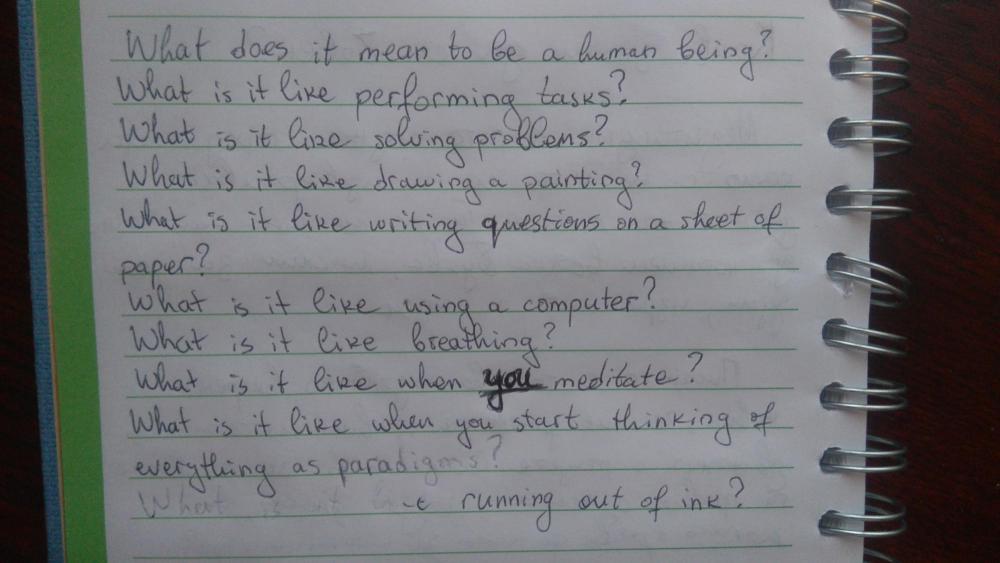 What does it mean to be a human being?
What is it like performing tasks?
What is it like solving problems?
What is it like drawing a painting?
What is it like writing questions on a sheet of
paper?
What is it like using a computer?
What is it like breathing?
What is it like when you meditate?
What is it like when you start thinking of
everything as paradigms?
What is it like running out of ink?